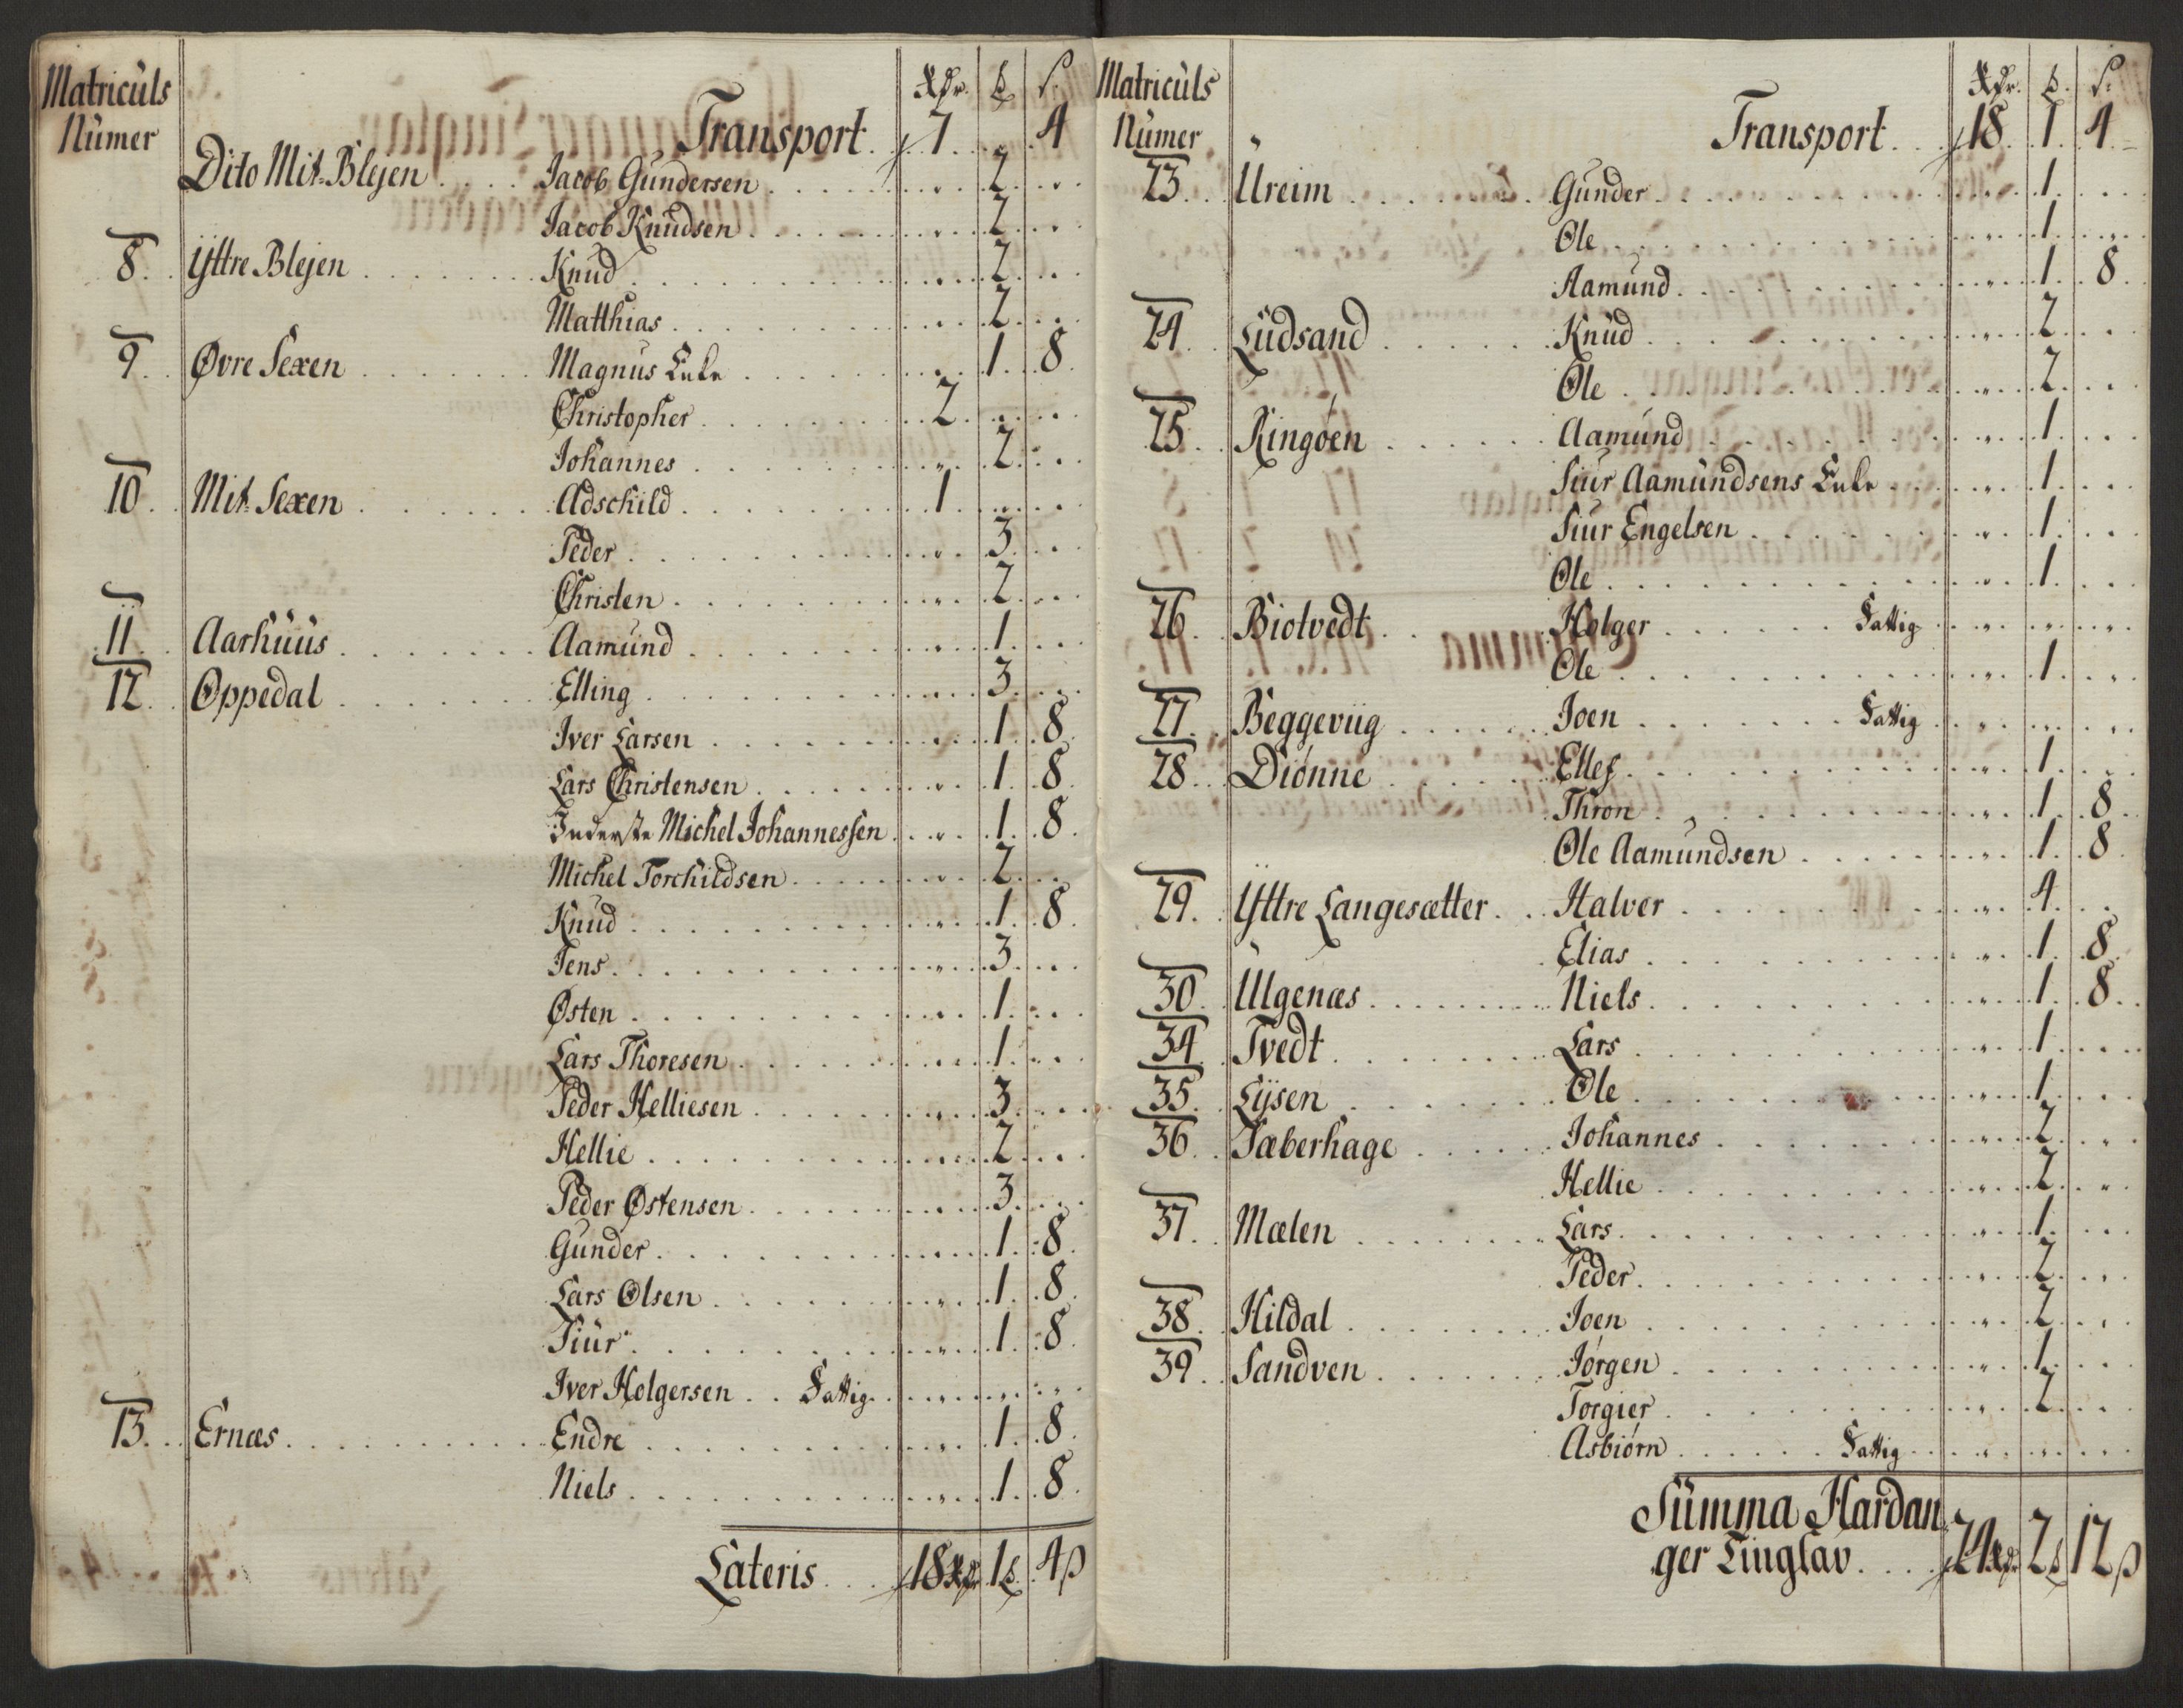 Matriculs Numer Rdr. ₻ ẞ.
Transport 7 . 4
Dito Mit-Blejen Jacob Gundersen 2
Jacob Knudsen 2
8. Ÿttre Blejen Knud 2
Matthias 2
9. Øvre Sexen Magnus Enke 1 8
Christopher 2
Johannes 2
10. Mit-Sexen Adschild 1
Peder 3
Christen 2
11. Aarhuus Aamund 1
12. Oppedal Elling 3
Iver Larsen 1 8
Lars Christensen 1 8
Inderste Michel Johannessen 1 8
Michel Torchildsen 2
Knud 1 8
Jens 3
Østen 1
Lars Thoresen 1
Peder Helliesen 3
Hellie 2
Peder Østensen 3
Gunder 1 8
Lars Olsen 1 8
Siur 1 8
Iver Holgersen Fattig
13. Ernæs Endre 1 8
Niels 1 8
Lateris 18 Rdr 1 ₻ 4 ẞ
Matriculs Numer Rdr. ₻ ẞ.
Transport 18 1 4
23. Ureim Gunder 1
Ole 1
Aamund 1 8
24. Ludsand Knud 2
Ole 2
25. Ringøen Aamund 1
Siur Aamundsens Enke 1
Siur Engelsen 1
Ole 1
26. Biotvedt Holger Fattig
Ole 1
27. Beggeviig Joen Fattig
28. Diønne Ellef 1
Thron 1 8
Ole Aamundsen 1 8
29. Ÿttre Langesætter Halver 4
Elias 1 8
30. Ulgenæs Niels 1 8
34. Tvedt Lars 1
35. Lÿsen Ole 1
36. Jæberhage Johannes 2
Hellie 2
37. Mælen Lars 1
Peder 2
38. Hildal Joen 2
39. Sandven Jørgen 1
Torgier 2
Asbiørn Fattig
Summa Hardan
ger Tinglav 24 Rdr 2 ₻ 12 ẞ